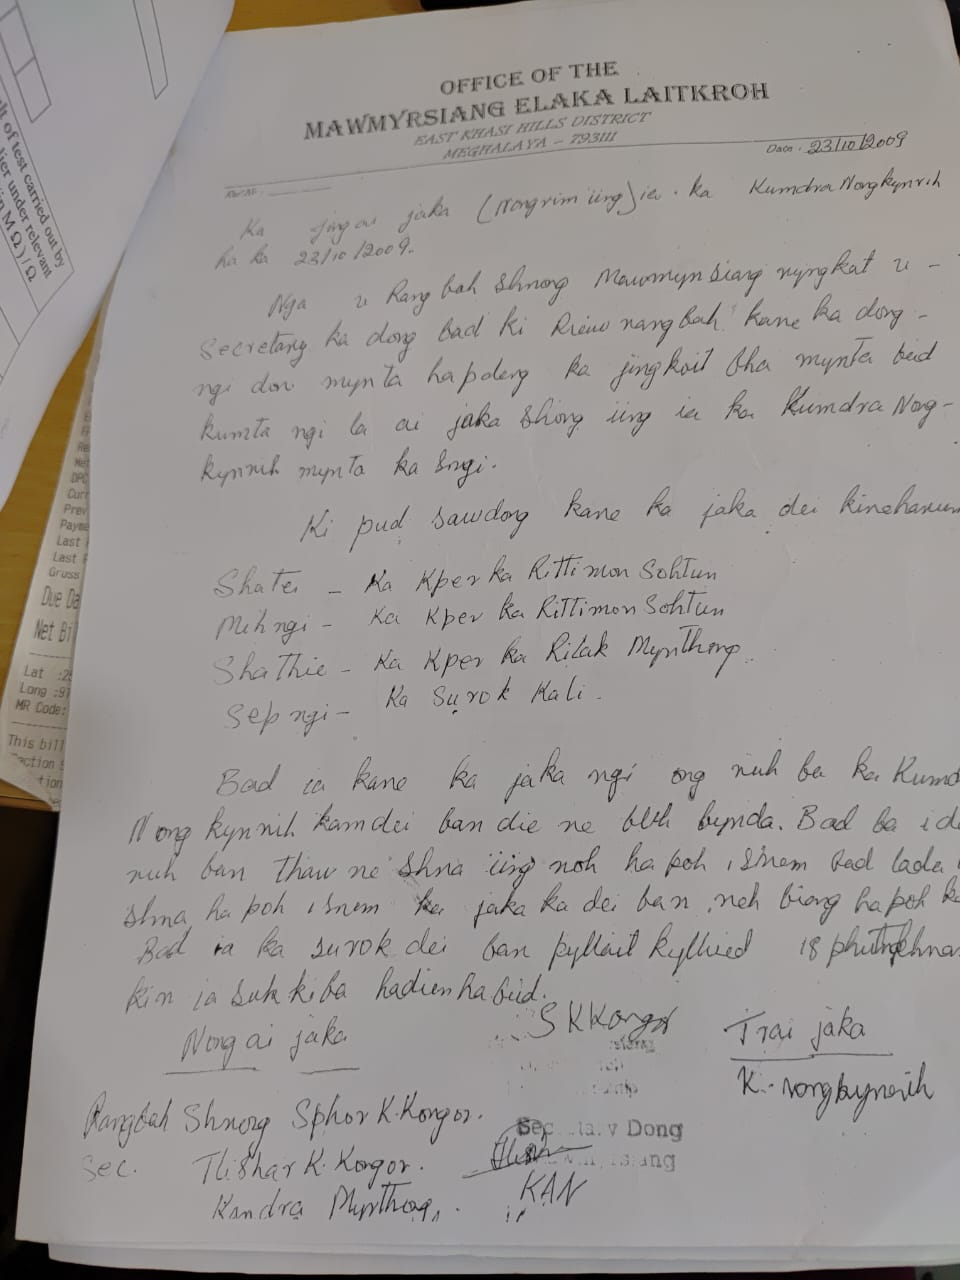 OFFICE OF THE
MAWMYRSIANG ELAKA LAITKROH
EAST KHASI HILLS DISTRICT
MEGHALAYA - 793111
Date. 23/10/2009
Ka jingai jaka (Nongrim iing) ia. ka Kumdra Nongkynrih
ha ka 23/10/2009.
Nga u Rangbah Shnong Mawmyrsiang ryngkat u -
Secretary ka dong bad ki Rieuw rangbah kane ka dong -
ngi don mynta hapdeng ka jingkoit bha mynta bad
kumta ngi la ai jaka shong iing ia ka Kumdra Nong-
kynrih mynta ka sngi.
Ki pud sawdong kane ka jaka dei kineharum
Shatei - Ka Kper ka Rittimon Sohtun
Mihngi - Ka Kper ka Rittimon Sohtun
Shathie - Ka Kper ka Rilak Mynthong.
Sepngi - Ka Surok Kali.
Bad ia kane ka jaka ngi ong ruh ba ka Kumd
Nongkynrih kamdei ban die ne buh bynda. Bad ba i d
ruh ban thaw ne shna iing noh ha poh 1 snem bad lada
shna ha poh 1 snem ka jaka ka dei ban neh biang hapoh k
Bad ia ka surok dei ban pyllait kylluid 18 phut
kin ia suk kiba hadien habud.
Nongai jaka
S K Kongor
Trai jaka
K. Nongkynrih
Rangbah Shnong Sphor K. Kongor.
Sec. Tlishar K. Kongor.
Dong
Kandra Mynthong.
KAN
lt of test carried out by
lier under relevant
in M Ω) / Ω
Due Da
Net Bi
Lat :25
Long :91
MR Code:
This bill